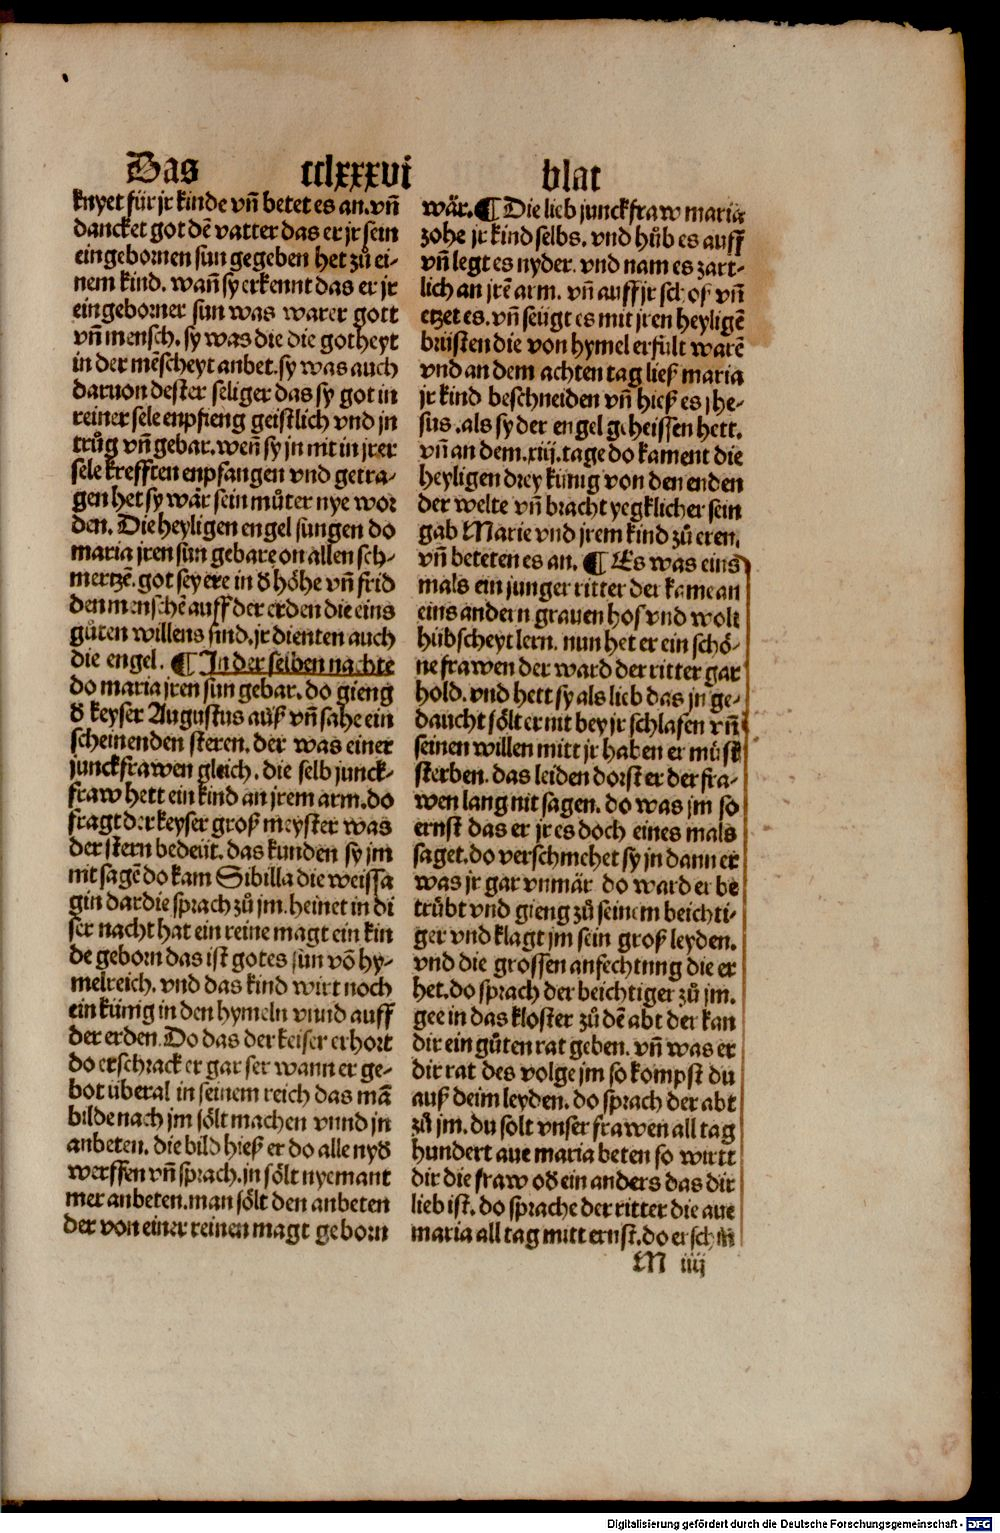 Das cclxxxvi blat
knyet für jr kinde vñ betet es an. vñ
dancket got dē vatter das er jr sein
eingebornen sun gegeben het zů ei-
nem kind. wañ sy erkennt das er jr
eingeborner sun was warer gott
vñ mensch. sy was die die gotheyt
in der mēscheyt anbet. sy was auch
daruon dester seliger das sy got in
reiner sele enpfieng geistlich vnd jn
trůg vñ gebar. weñ sy jn nit in jrer
sele krefften enpfangen vnd getra-
gen het sy wär sein můter nye wor
den. Die heyligen engel sungen do
maria jren sun gebare on allen sch-
mertzē. got sey ere in d höhe vñ frid
den menschē auff der erden die eins
gůten willens sind. jr dienten auch
die engel. ¶ In der selben nachte
do maria jren sun gebar. do gieng
d keyser Augustus auß vñ sahe ein
scheinenden steren. der was einer
junckfrawen gleich. die selb junck-
fraw hett ein kind an jrem arm. do
fragt der keyser groß meyster was
der stern bedeüt. das kunden sy jm
nit sagē do kam Sibilla die weissa
gin dar die sprach zů jm. heinet in di
ser nacht hat ein reine magt ein kin
de geborn das ist gotes sun vō hy-
melreich. vnd das kind wirt noch
ein künig in den hymeln vnnd auff
der erden. Do das der keiser erhort
do erschrack er gar ser wann er ge-
bot überal in seinem reich das mā
bilde nach jm sölt machen vnnd jn
anbeten. die bild hieß er do alle nyd
werffen vñ sprach. jn sölt nyemant
mer anbeten. man sölt den anbeten
der von einer reinen magt geborn
wär. ¶ Die lieb junckfraw maria
zohe jr kind selbs. vnd hůb es auff
vñ legt es nyder. vnd nam es zart-
lich an jrē arm. vñ auff jr schoß vñ
etzet es. vñ seügt es mit jren heyligē
brüsten die von hymel erfült warē
vnd an dem achten tag ließ maria
jr kind beschneiden vñ hieß es jhe-
sus. als sy der engel geheissen hett.
vñ an dem .xiij. tage do kament die
heyligen drey künig von den enden
der welte vñ bracht yegklicher sein
gab Marie vnd jrem kind zů eren.
vñ beteten es an. ¶ Es was eins
mals ein junger ritter der kame an
eins andern grauen hof vnd wolt
hübscheyt lern. nun het er ein schö-
ne frawen der ward der ritter gar
hold. vnd hett sy als lieb das jn ge-
daucht sölt er nit bey jr schlafen vñ
seinen willen mitt jr haben er müst
sterben. das leiden dorst er der fra-
wen lang nit sagen. do was jm so
ernst das er jr es doch eines mals
saget. do verschmehet sy jn dann er
was jr gar vnmär do ward er be
trübt vnd gieng zů seinem beichti-
ger vnd klagt jm sein groß leyden.
vnd die grossen anfechtung die er
het. do sprach der beichtiger zů jm.
gee in das kloster zů dē abt der kan
dir ein gůten rat geben. vñ was er
dir rat des volge jm so kompst du
auß deim leyden. do sprach der abt
zů jm. du solt vnser frawen all tag
hundert aue maria beten so wirtt
dir die fraw od ein anders das dir
lieb ist. do sprache der ritter die aue
maria all tag mitt ernst. do erschin
M iiij
Digitalisierung gefördert durch die Deutsche Forschungsgemeinschaft - DFG